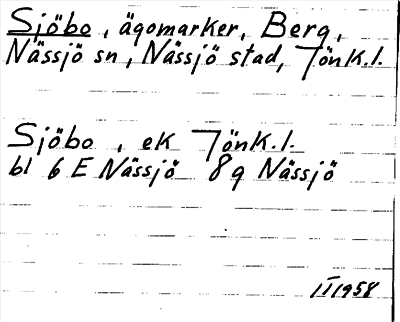 Sjöbo, ägomarker, Berg,
Nässjö sn, Nässjö stad, Jönk.l.
Sjöbo, ek Jönk.l.
bl 6 E Nässjö 8 q Nässjö
II 1958